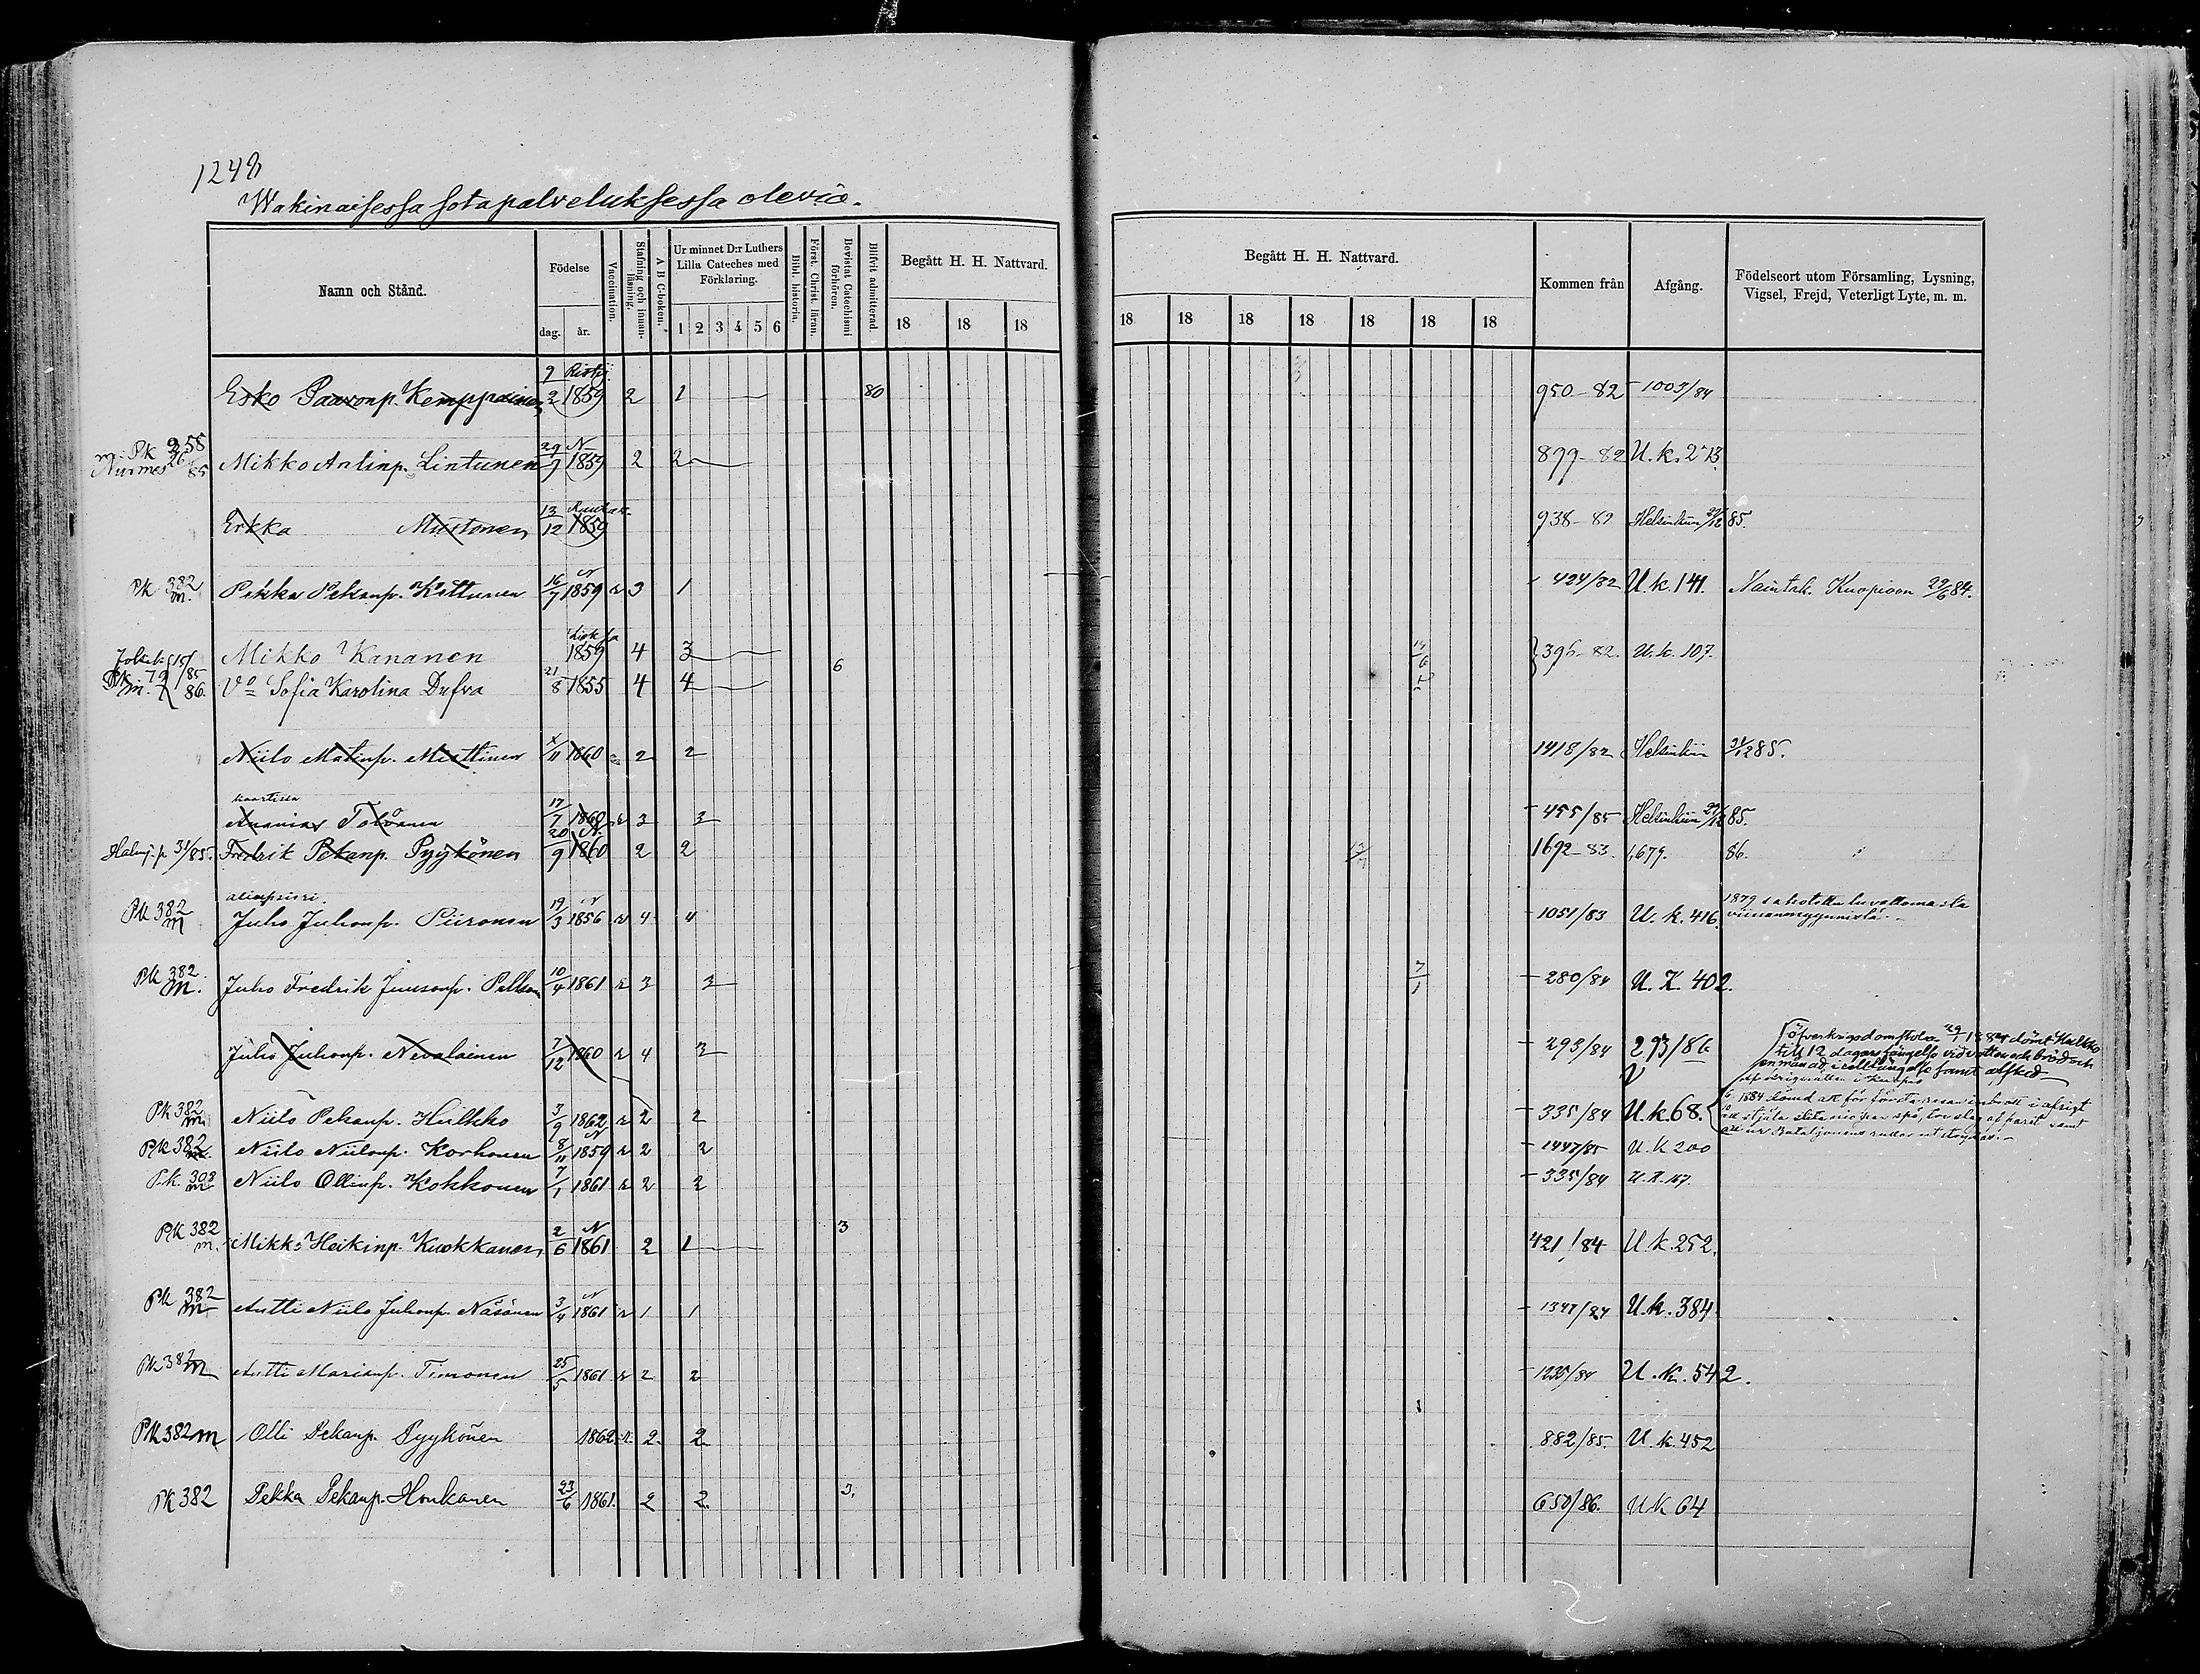 1248
Wakinaisessa sotapalveluksessa olevia.
Namn och Stånd.
Födelse
dag. år.
Vaccination.
Stafning och innan-läsning.
A B C-boken.
Ur minnet D:r Luthers Lilla Cateches med Förklaring.
1 2 3 4 5 6
Bibl. historia.
Först. Christ. läran.
Bevistat Catechismi förhören.
Blifvit admitterad.
Begått H. H. Nattvard.
18 18 18
Begått H. H. Nattvard.
18 18 18 18 18 18 18
Kommen från
Afgång.
Födelseort utom Församling, Lysning, Vigsel, Frejd, Veterligt Lyte, m. m.
Esko Paavonp. Kemppainen 9/2 1859 2 1 80 950-82 1003/84
Nurmes 85 Mikko Antinp. Lintunen 29/9 N 1859 2 2 899-82 U.k. 273
Erkka Mustonen 13/12 1859 938-82 Helsinkiin 85.
Pk 382 m. Pekka Pekanp. Kettunen 16/7 N 1859 r 3 1 424/82 U.k. 141. Naintod. Kuopioon 29/6 84.
Mikko Kananen 1859 4 3 396-82. U.k. 107.
m. 86. Vo Sofia Karolina Dufva 21/8 1855 4 4 6
Niilo Matinp. Miettinen /11 1860 2 2 1418/82 Helsinkiin 85.
kaartissa
Ananias Tolvanen 17/7 1860 r 3 3 455/85 Helsinkiin 85.
31/85. Fredrik Pekanp. Pyykönen 20/9 N. 1860 2 2 1692-83. 1,679. 86.
aliupsieri.
Pk 382 m Juho Juhonp. Piironen 19/3 N 1856 r 4 4 1051/83 U.k. 416.
1879 sakotettu luvattomasta viinanmyynnistä.
Pk 382. m. Juho Fredrik Juusonp. 10/4 1861 r 3 3 280/84 U.K. 402.
Juho Juhonp. Nevalainen 7/12 1860 r 4 3 293/84 273/86
till 12 dagars fängelse vid vatten och bröd och
en månad i cellfängelse samt afsked
Pk 382 m Niilo Pekanp. Hulkko 3/9 1862 r 2 2 335/84 U.k. 68.
1884 dömd att för första resan inbrott i afsigt
Pk 382 m. Niilo Niilonp. Korhonen 8/11 N 1859 r 2 2 1447/85 U.k 200
Pk. 303 m Niilo Ollinp. Kokkonen 7/1 1861 r 2 2 335/84 U.K. 167.
Pk 382 m. Mikko Heikinp. Kuokkanen 2/6 N 1861 2 1 3 421/84 U.k. 252.
Pk 382 m Antti Niilo Juhonp. Näsänen 3/4 N 1861 r 1 1 1347/84 U.k. 384
Pk 382 m Antti Marianp. Timonen 25/5 1861 r 2 2 1235/84 U.k. 542.
Pk 382 m Olli Pekanp. Pyykönen 1862 r. 2. 2 882/85. U.k. 452
Pk 382 Pekka Pekanp. Honkanen 23/6 1861. 2 2. 3. 650/86. Uk 64